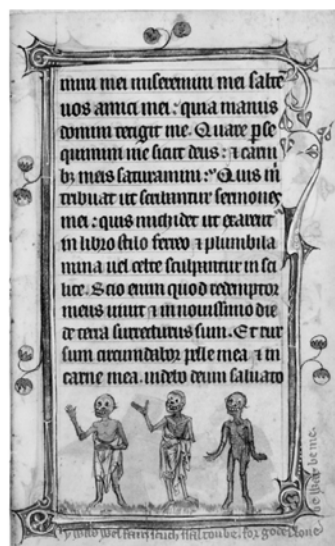 mini mei miseremini mei salte
uos amici mei: quia manus
domini tetigit me. Quare pse
quimini me sicut deus: ⁊ carni
bz meis saturamini: Quis m
tribuat ut scribantur sermones
mei: quis michi det ut exarent
in libro stilo ferreo ⁊ plumbi la
mina uel celte sculpantur in si
lice. Scio enim quod redemptor
meus uiuit ⁊ in nouissimo die
de terra surrecturus sum. Et rur
sum circumdabor pelle mea ⁊ in
carne mea uidebo deum saluato
y was wel fair such shal tou be. for godes loue
be war be me.